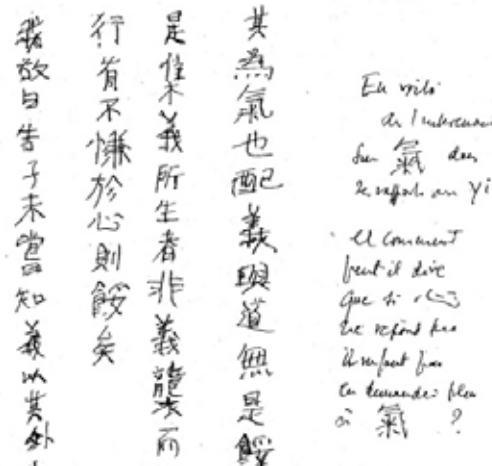 其為氣也配義與道無是餒
是集義所生者非義襲而
行有不慊於心則餒矣
我故曰告子未嘗知義以其外
En voilà
sur 氣 dans
les rapports au Yi
et comment
peut il dire
que si
ne répond pas
il ne faut pas
en demander plus
à 氣 ?